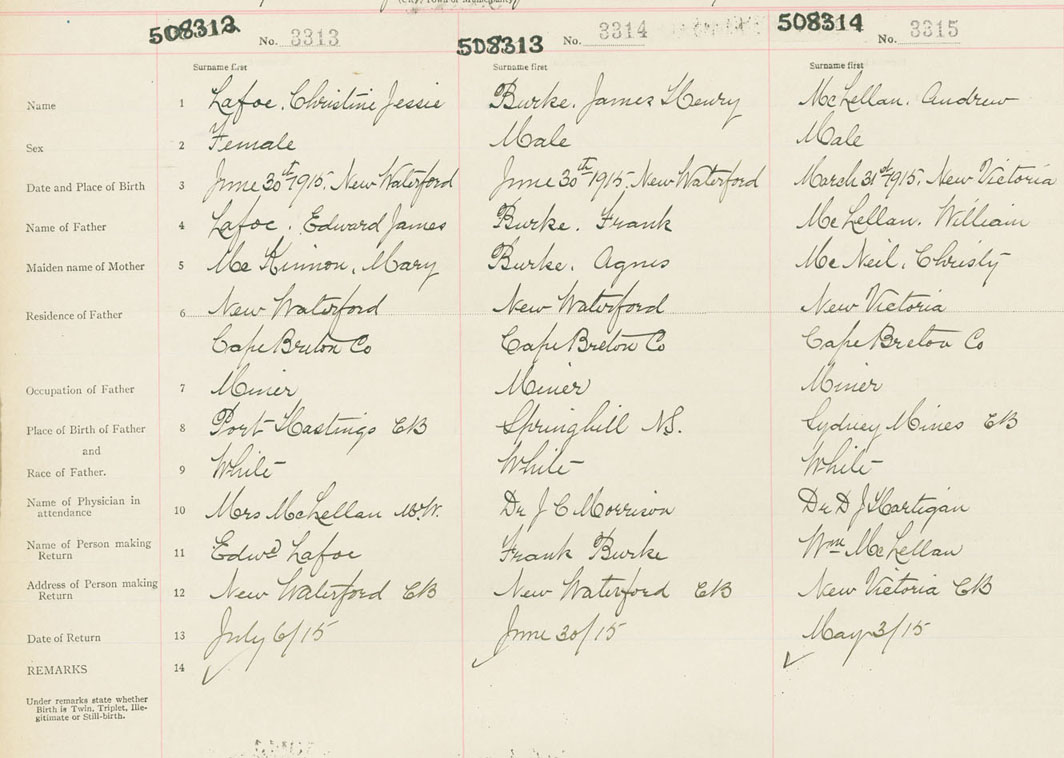 (City, Town or Municipality)
508312 No. 3313
508313 No. 3314
508314 No. 3315
Surname first Surname first Surname first
Name 1 Lafoe. Christine Jessie Burke. James Henry McLellan. Andrew
Sex 2 Female Male Male
Date and Place of Birth 3 June 30th 1915. New Waterford June 30th 1915. New Waterford March 31st 1915. New Victoria
Name of Father 4 Lafoe. Edward James Burke. Frank McLellan. William
Maiden name of Mother 5 McKinnon, Mary Burke. Agnes McNeil. Christy
Residence of Father 6 New Waterford New Waterford New Victoria
Cape Breton Co Cape Breton Co Cape Breton Co
Occupation of Father 7 Miner Miner Miner
Place of Birth of Father 8 Port Hastings CB Springhill NS. Sydney Mines CB
and
Race of Father. 9 White White White
Name of Physician in
attendance 10 Mrs McLellan Dr J C Morrison Dr D J Hartigan
Name of Person making
Return 11 Edwd Lafoe Frank Burke Wm McLellan
Address of Person making
Return 12 New Waterford CB New Waterford CB New Victoria CB
Date of Return 13 July 6/15 June 30/15 May 3/15
REMARKS 14
Under remarks state whether
Birth is Twin, Triplet, Ille-
gitimate or Still-birth.